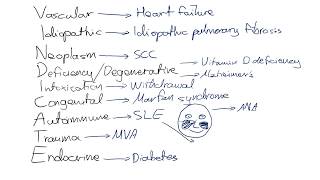 Vascular → Heart failure
Idiopathic → Idiopathic pulmonary fibrosis
Neoplasm → SCC
Deficiency/Degenerative → Vitamin D deficiency
→ Alzheimer's
Intoxication → Withdrawal
Congenital → Marfan syndrome
Autoimmune → SLE → ANA
Trauma → MVA
Endocrine → Diabetes